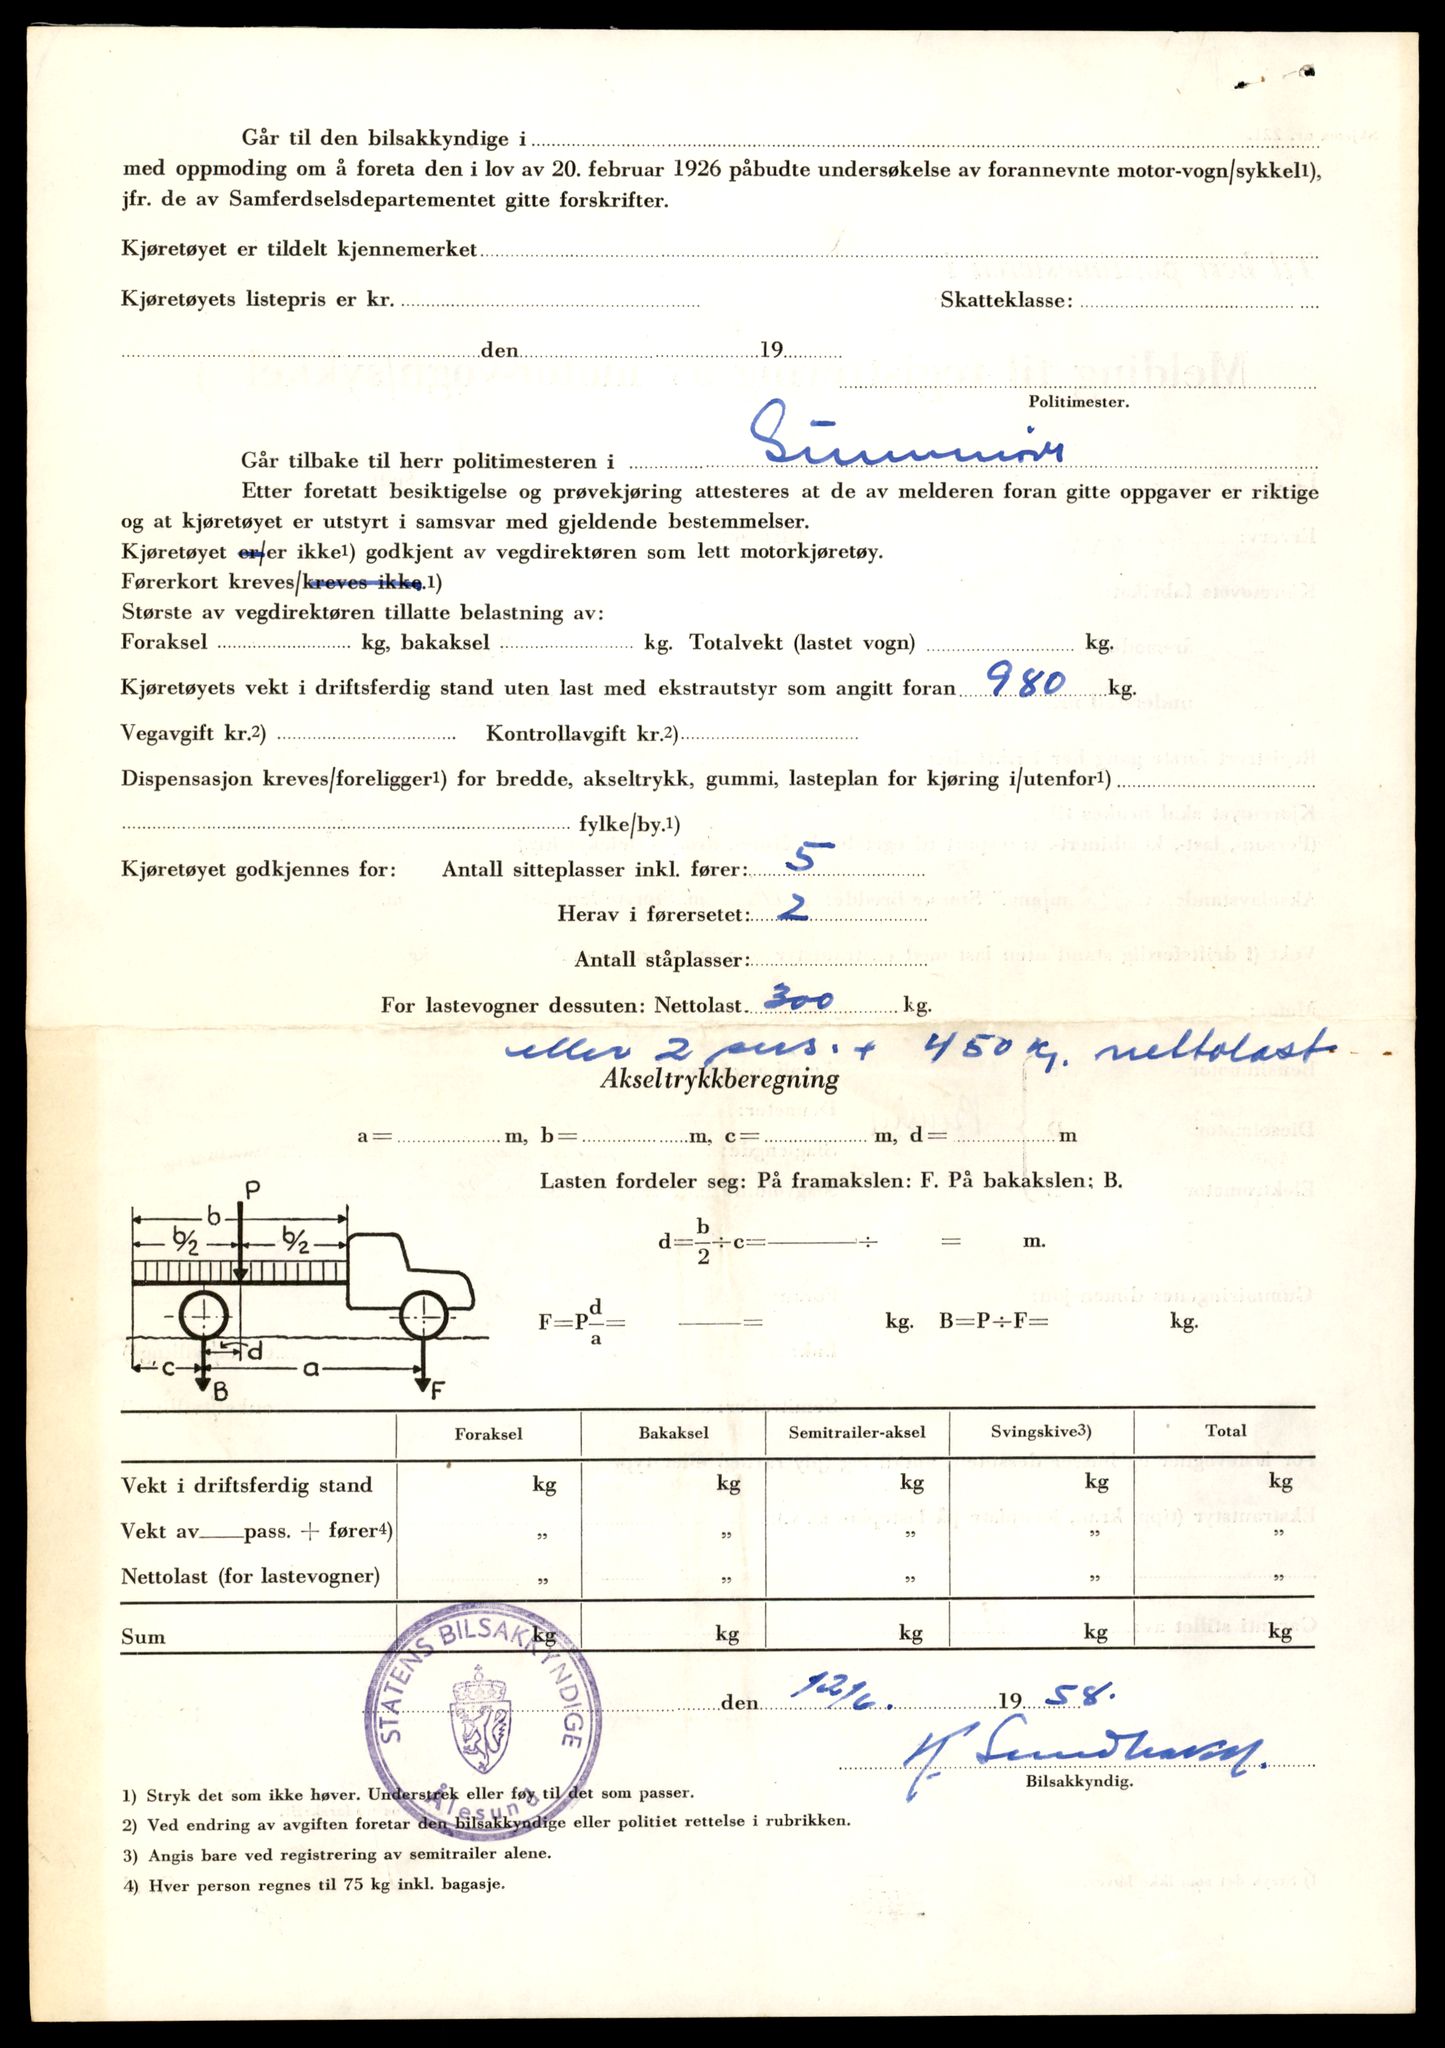 Går til den bilsakkyndige i
med oppmoding om å foreta den i lov av 20. februar 1926 påbudte undersøkelse av forannevnte motor-vogn/sykkel1),
jfr. de av Samferdselsdepartementet gitte forskrifter.
Kjøretøyet er tildelt kjennemerket
Kjøretøyets listepris er kr. Skatteklasse:
den 19
Politimester.
Går tilbake til herr politimesteren i Sunnmøre
Etter foretatt besiktigelse og prøvekjøring attesteres at de av melderen foran gitte oppgaver er riktige
og at kjøretøyet er utstyrt i samsvar med gjeldende bestemmelser.
Kjøretøyet er/er ikke1) godkjent av vegdirektøren som lett motorkjøretøy.
Førerkort kreves/kreves ikke.1)
Største av vegdirektøren tillatte belastning av:
Foraksel kg, bakaksel kg. Totalvekt (lastet vogn) kg.
Kjøretøyets vekt i driftsferdig stand uten last med ekstrautstyr som angitt foran 980 kg.
Vegavgift kr.2) Kontrollavgift kr.2)
Dispensasjon kreves/foreligger1) for bredde, akseltrykk, gummi, lasteplan for kjøring i/utenfor1)
fylke/by.1)
Kjøretøyet godkjennes for: Antall sitteplasser inkl. fører: 5
Herav i førersetet: 2
Antall ståplasser:
For lastevogner dessuten: Nettolast. 300 kg.
eller 2 pers. + 450 kg. nettolast
Akseltrykkberegning
a = m, b = m, c = m, d = m
Lasten fordeler seg: På framakslen: F. På bakakslen; B.
P
b
b/2 b/2
d = b/2 ÷ c = ÷ = m.
F = P d/a = = kg. B = P ÷ F = kg.
c d a
B F
Foraksel Bakaksel Semitrailer-aksel Svingskive3) Total
Vekt i driftsferdig stand kg kg kg kg kg
Vekt av pass. + fører4) „ „ „ „ „
Nettolast (for lastevogner) „ „ „ „ „
Sum kg kg kg kg kg
STATENS BILSAKKYNDIGE
Ålesund
den 12/6. 19 58.
Bilsakkyndig.
1) Stryk det som ikke høver. Understrek eller føy til det som passer.
2) Ved endring av avgiften foretar den bilsakkyndige eller politiet rettelse i rubrikken.
3) Angis bare ved registrering av semitrailer alene.
4) Hver person regnes til 75 kg inkl. bagasje.